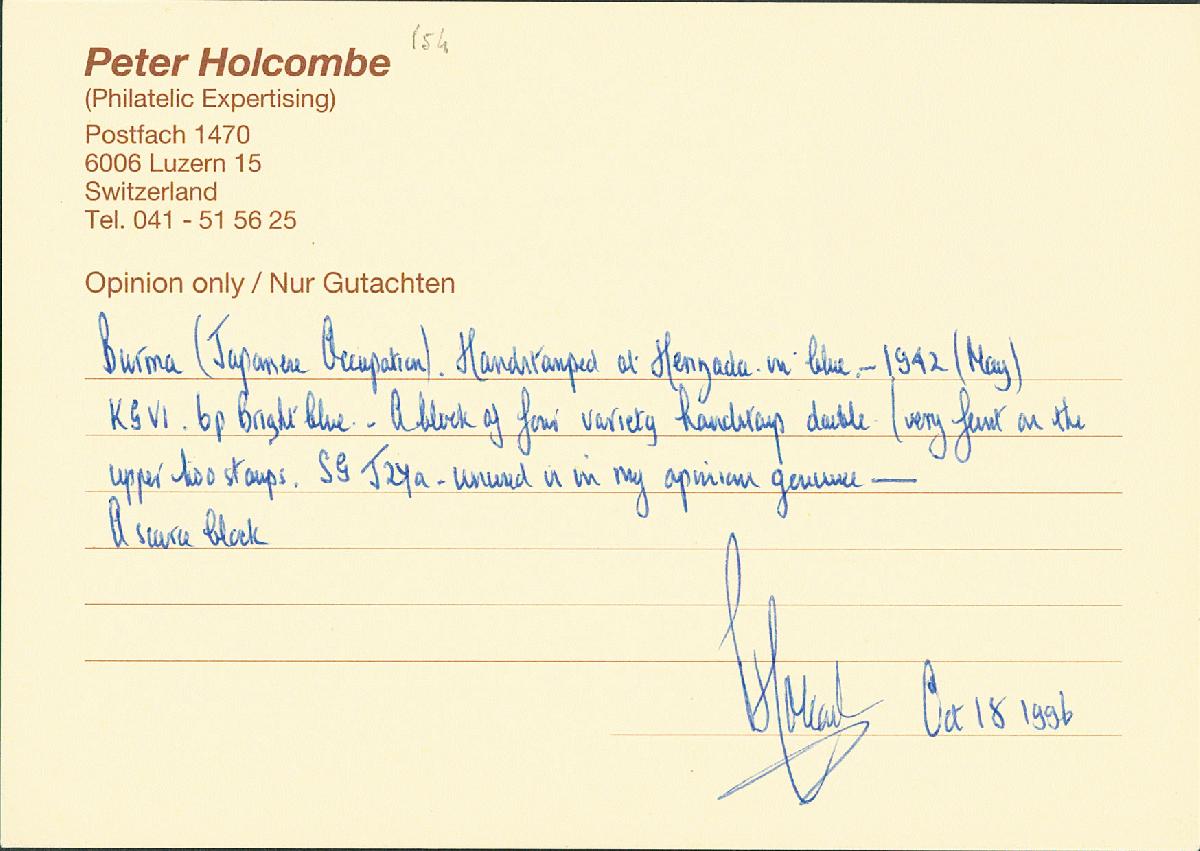 154
Peter Holcombe
(Philatelic Expertising)
Postfach 1470
6006 Luzern 15
Switzerland
Tel. 041 - 51 56 25
Opinion only / Nur Gutachten
Burma (Japanese Occupation). Handstamped at Henzada in blue. – 1942 (May)
KGVI. 6p bright blue. – A block of four variety handstamp double (very faint on the
upper two stamps. SG J27a – unused is in my opinion genuine —
A scarce block
Oct 18 1996